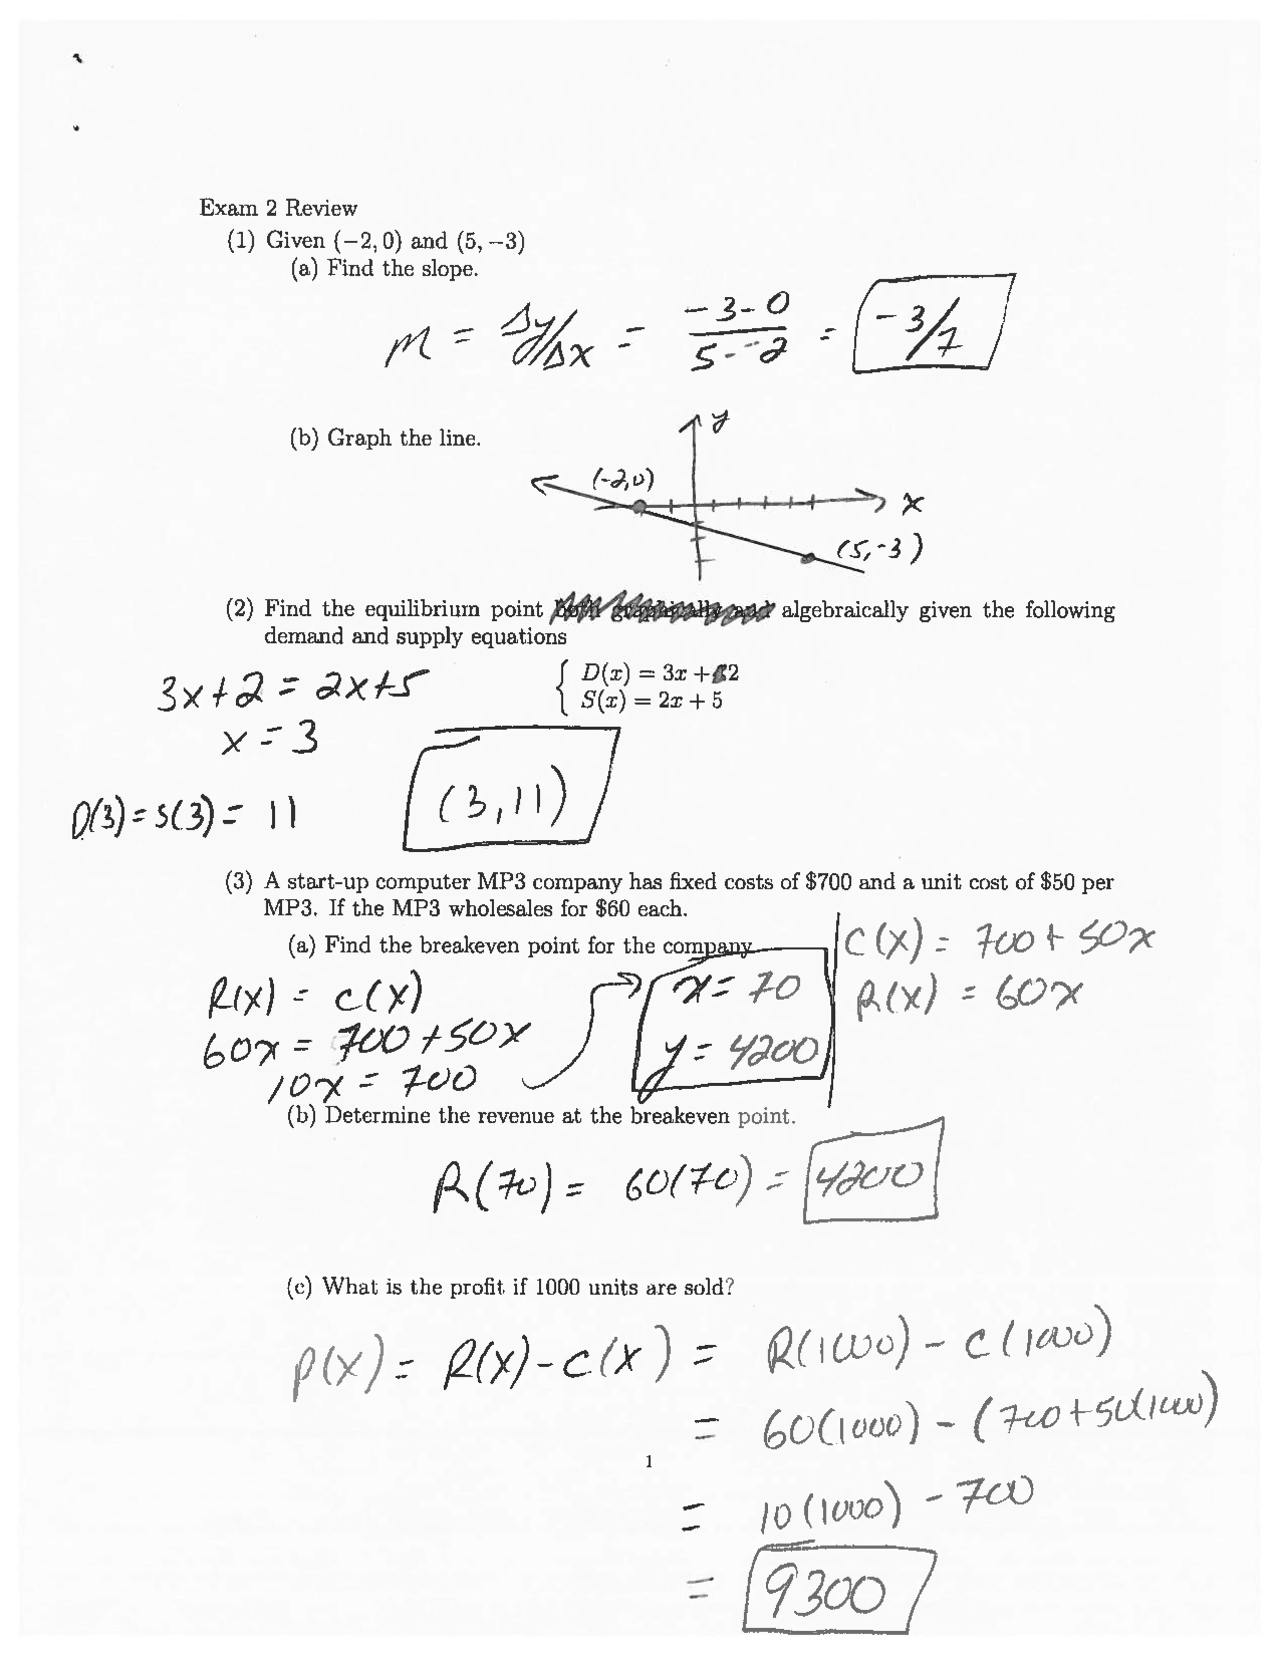 Exam 2 Review
(1) Given (−2, 0) and (5, −3)
(a) Find the slope.
m = Δy/Δx = -3-0 / 5--2 = -3/7
(b) Graph the line.
y
(-2,0)
x
(5,-3)
(2) Find the equilibrium point both graphically and algebraically given the following
demand and supply equations
D(x) = 3x + 2
S(x) = 2x + 5
3x+2 = 2x+5
x = 3
D(3) = S(3) = 11
(3,11)
(3) A start-up computer MP3 company has fixed costs of $700 and a unit cost of $50 per
MP3. If the MP3 wholesales for $60 each.
(a) Find the breakeven point for the company
C(x) = 700 + 50x
R(x) = 60x
R(x) = C(x)
60x = 700 + 50x
10x = 700
x = 70
y = 4200
(b) Determine the revenue at the breakeven point.
R(70) = 60(70) = 4200
(c) What is the profit if 1000 units are sold?
P(x) = R(x) - C(x) = R(1000) - C(1000)
= 60(1000) - (700+50(1000)
1
= 10(1000) - 700
= 9300